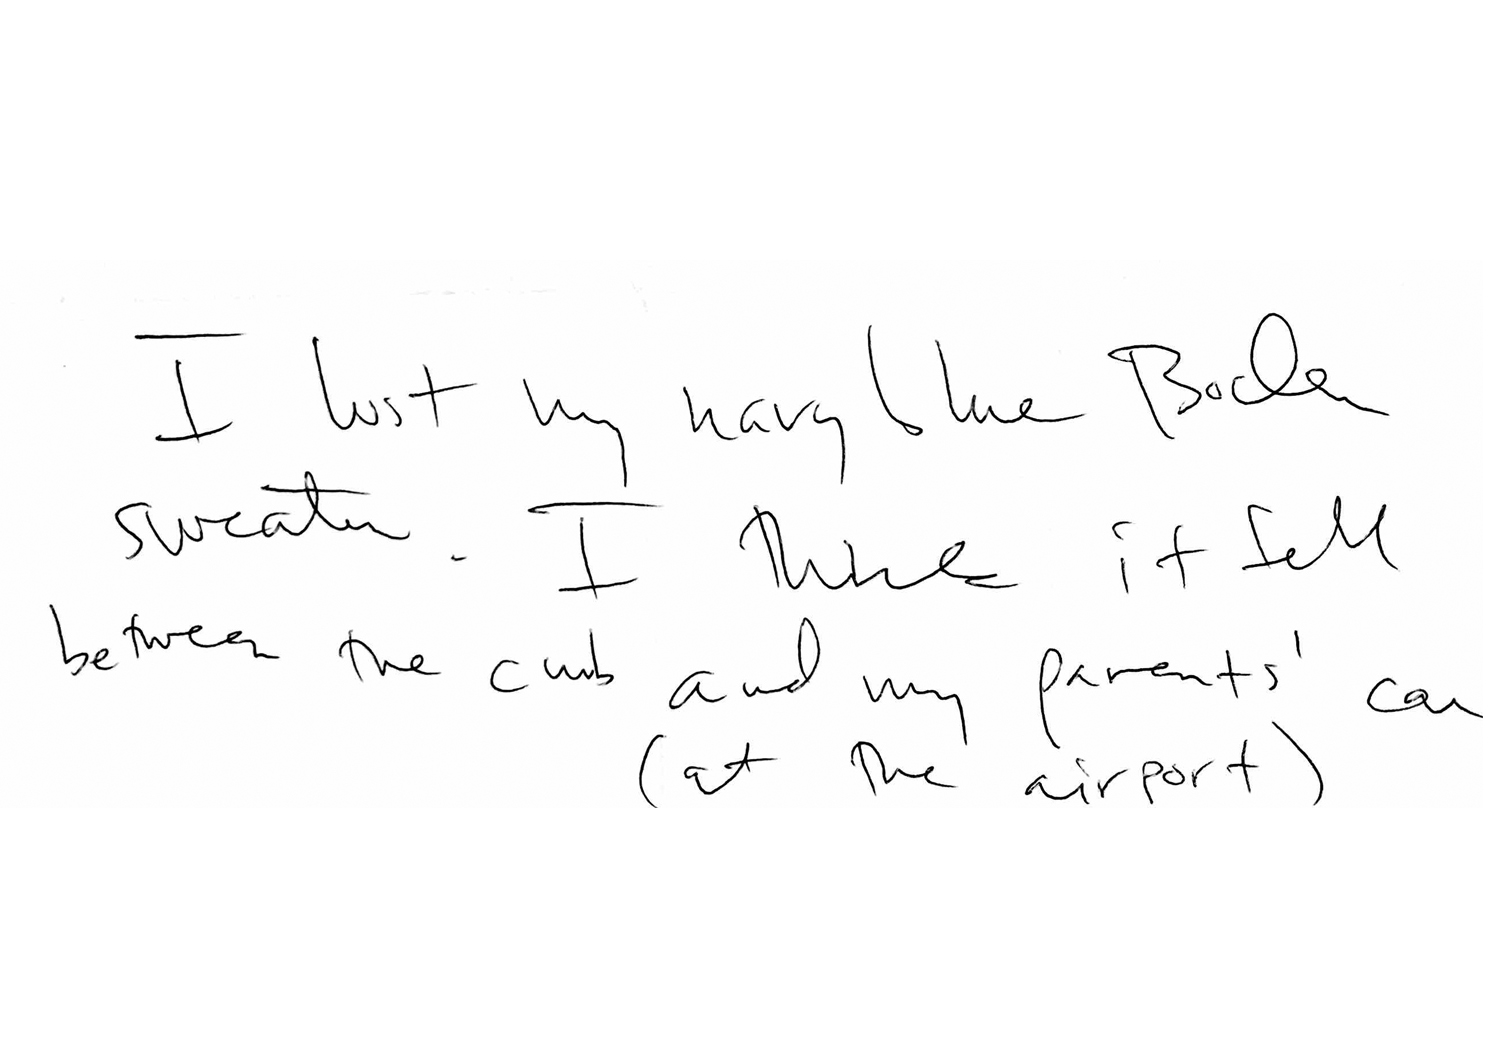 I lost my navy blue Boden
sweater. I think it fell
between the curb and my parents' car
(at the airport)